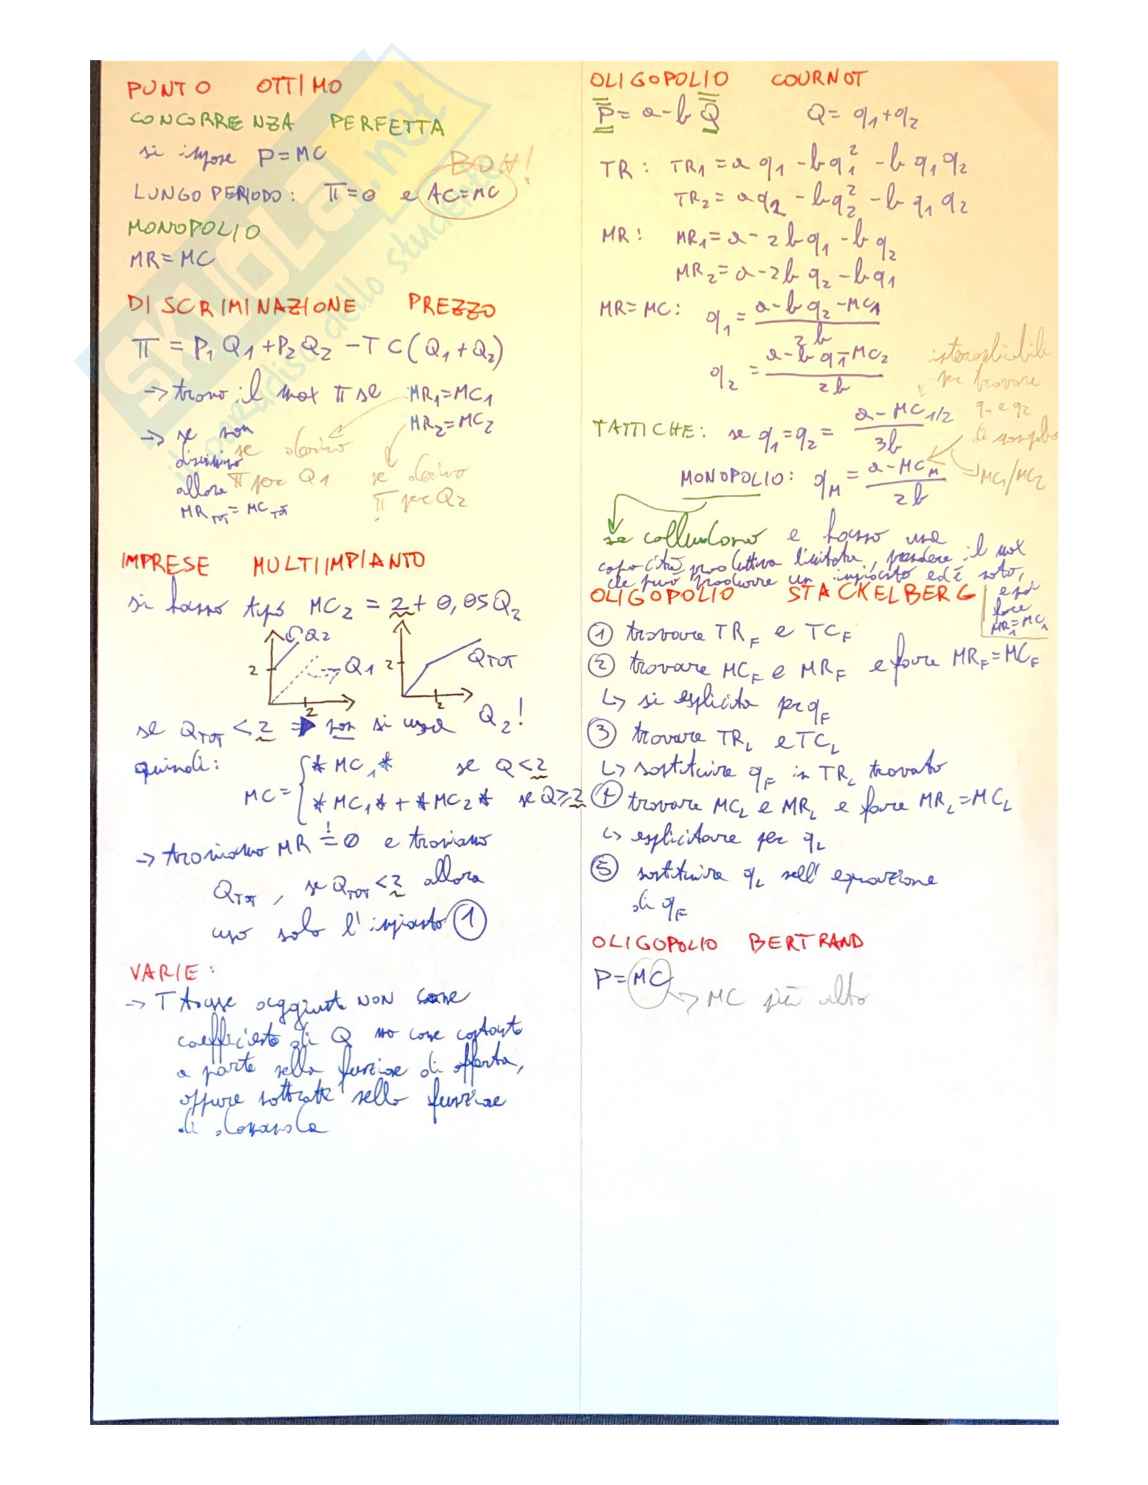 PUNTO OTTIMO
CONCORRENZA PERFETTA
si impone P=MC
BOH!
LUNGO PERIODO: π=0 e AC=MC
MONOPOLIO
MR=MC
DISCRIMINAZIONE PREZZO
π = P₁Q₁+P₂Q₂ -TC(Q₁+Q₂)
→ trovo il max π se MR₁=MC₁
MR₂=MC₂
→ se non
discrimino
allora
MR TOT = MC TOT
se derivo
π per Q₁
se derivo
π per Q₂
IMPRESE MULTIIMPIANTO
si hanno tipo MC₂ = 2 + 0,05Q₂
Q₂
2
Q₁
2
2
QTOT
2
se QTOT < 2 ⇒ non si usa Q₂!
quindi:
MC= { *MC₁* se Q<2
*MC₁* + *MC₂* se Q≥2
→ troviamo MR = 0 e troviamo
QTOT, se QTOT<2 allora
uso solo l'impianto 1
VARIE:
→ Tasse aggiunte NON come
coefficiente di Q ma come costante
a parte nella funzione di offerta,
oppure sottratte nella funzione
di domanda
OLIGOPOLIO COURNOT
P = a-b Q Q= q₁+q₂
TR: TR₁=a q₁ -bq₁² -b q₁ q₂
TR₂=aq₂ -bq₂² -b q₁ q₂
MR: MR₁=a-2b q₁ -b q₂
MR₂=a-2b q₂ -bq₁
MR=MC: q₁ = a-b q₂ -MC₁ / 2b
q₂ = a-b q₁-MC₂ / 2b
intercambiabile
per trovare
q₁ e q₂
TATTICHE: se q₁=q₂= a-MC1/2 / 3b
MC₁/MC₂
MONOPOLIO: qM = a-MCM / 2b
se colludono e hanno una
capacità produttiva limitata, prendere il max
che può produrre un impianto ed è noto,
e poi
fare
MR₁=MC₁
OLIGOPOLIO STACKELBERG
① trovare TRF e TCF
② trovare MCF e MRF e fare MRF=MCF
↳ si esplicita per qF
③ trovare TRL e TCL
↳ sostituire qF in TRL trovato
④ trovare MCL e MRL e fare MRL=MCL
↳ esplicitare per qL
⑤ sostituire qL nell'equazione
di qF
OLIGOPOLIO BERTRAND
P=MC
→ MC più alto
SKUOLA.net
il paradiso dello studente